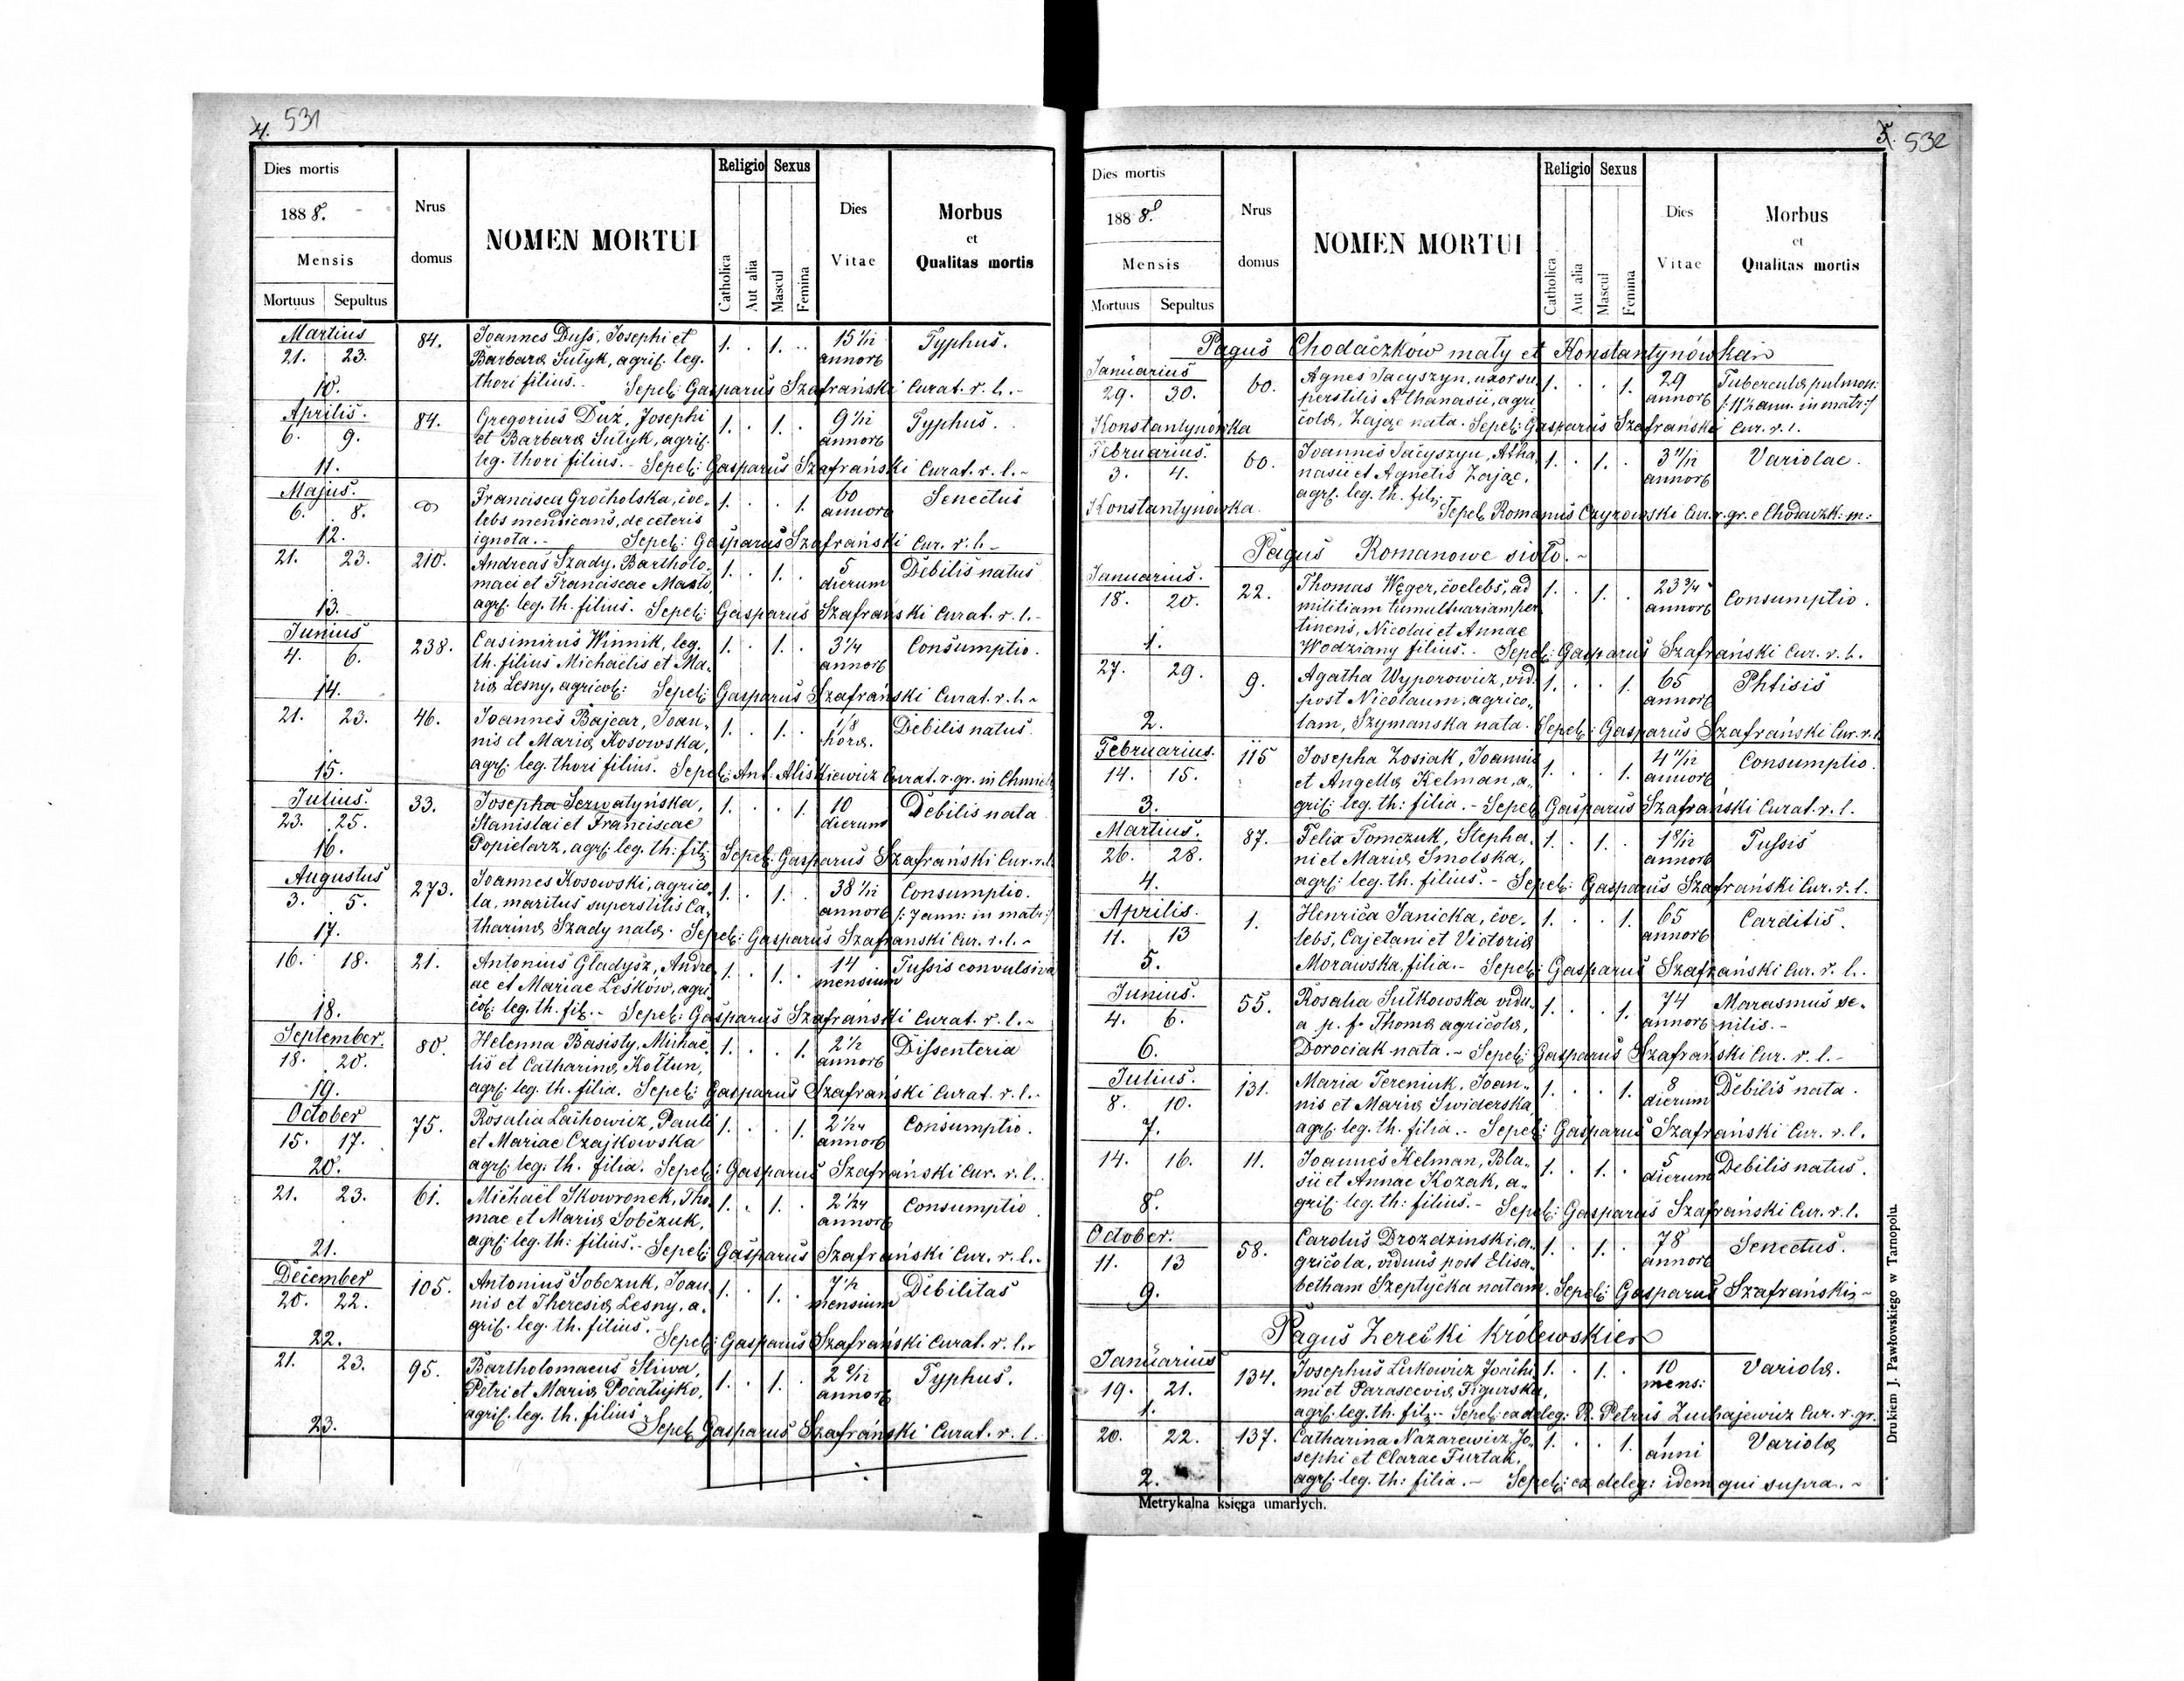 4. 531
Dies mortis
188 8.
Mensis
Mortuus Sepultus
Nrus domus
NOMEN MORTUI
Religio
Catholica
Aut alia
Sexus
Mascul
Femina
Dies Vitae
Morbus
et
Qualitas mortis
Martius
21. 23. 84. Joannes Duss, Josephi et 1. . 1. . 15 1/12 annorb Typhus.
Barbara Sutyk, agrif. leg.
thori filius. Sepel: Gasparus Szafrański Curat. r. l.
10.
Aprilis.
6. 9. 84. Gregorius Duż, Josephi 1. . 1. . 9 1/12 annorb Typhus.
et Barbara Sutyk, agrif.
leg. thori filius. Sepel: Gasparus Szafrański Curat. r. l.
11.
Majus.
6. 8. Francisca Grocholska, coe- 1. . . 1. 60 annorb Senectus
lebs mendicans, de ceteris
ignota. Sepel: Gasparus Szafrański Cur. r. l.
12.
21. 23. 210. Andreas Szady, Bartholo- 1. . 1. . 5 dierum Debilis natus
maei et Franciscae
agrf: leg. th. filius. Sepel: Gasparus Szafrański Curat. r. l.
13.
Junius
4. 6. 238. Casimirus Winnik, leg. 1. . 1. . 3 1/4 annorb Consumptio.
th. filius Michaelis et Ma-
ria Lesny, agricol: Sepel: Gasparus Szafrański Curat. r. l.
14.
21. 23. 46. Joannes Bajcar, Joan- 1. . 1. . 1/8 hora. Debilis natus.
nis et Maria Kosowska,
agrf: leg. thori filius. Sepel: Ant. Aliskiewicz Curat. r. gr. in
15.
Julius.
23. 25. 33. Josepha Serwatyńska, 1. . . 1. 10 dierum Debilis nata
Stanislai et Franciscae
Popielarz, agrf: leg. th: fil: Sepel: Gasparus Szafrański Cur. r. l.
16.
Augustus
3. 5. 273. Joannes Kosowski, agrico- 1. . 1. . 38 1/12 annorb Consumptio.
la, maritus superstitis Ca- /: 7 ann: in matr: /
tharina Szady nata. Sepel: Gasparus Szafranski Cur. r. l.
17.
16. 18. 21. Antonius Gladysz, Andre 1. . 1. . 14 mensium Tussis convulsiva
ae et Mariae Leśków, agri
col: leg. th. fil. Sepel: Gasparus Szafrański Curat. r. l.
18.
September.
18. 20. 80. Helenna Basisty, Michae- 1. . . 1. 2 1/2 annorb Dissenteria
lis et Catharina Kołtun,
agrf: leg. th. filia. Sepel: Gasparus Szafrański Curat. r. l.
19.
October
15. 17. 75. Rosalia Lachowicz, Pauli 1. . . 1. 2 1/24 annorb Consumptio.
et Mariae Czajkowska
agrf: leg. th. filia. Sepel: Gasparus Szafrański Cur. r. l.
20.
21. 23. 61. Michaël Skowronek, Tho- 1. . 1. . 2 1/24 annorb Consumptio.
mae et Maria Sobczuk,
agrf: leg. th: filius. Sepel: Gasparus Szafrański Cur. r. l.
21.
December
20. 22. 105. Antonius Sobczuk, Joan 1. . 1. . 7 1/2 mensium Debilitas
nis et Theresia Lesny, a-
grif. leg. th. filius. Sepel: Gasparus Szafrański Curat. r. l.
22.
21. 23. 95. Bartholomaeus Sliwa, 1. . 1. . annorb Typhus.
Petri et Maria Pocałujko,
agrif. leg. th. filius. Sepel. Gasparus Szafrański Curat. r. l.
23.
5. 532
Dies mortis
188 8.
Mensis
Mortuus Sepultus
Nrus domus
NOMEN MORTUI
Religio
Catholica
Aut alia
Sexus
Mascul
Femina
Dies Vitae
Morbus
et
Qualitas mortis
Pagus Chodaczków mały et Konstantynówka
Januarius
29. 30. 60. Agnes Jacyszyn, uxor su 1. . . 1. 29 annorb Tubercula pulmon:
perstitis Athanasii, agri /: 11 1/2 ann. in matr: /
Konstantynówka cola, Zając nata. Sepel: Gasparus Szafrański Cur. r. l.
Februarius.
3. 4. 60. Joannes Jacyszyn, Atha 1. . 1. . 3 11/12 annorb Variolae.
nasii et Agnetis Zając,
agrf. leg. th. fil:
Konstantynówka. Sepel. Romanus Czyrowski Cur. r. gr. e Chodaczk: m:
Pagus Romanowe sioło.
Januarius.
18. 20. 22. Thomas Węger, coelebs, ad 1. . 1. . 23 3/4 annorb Consumptio.
militiam tumultuariam per
tinens, Nicolai et Annae
1. Wodziany filius. Sepel: Gasparus Szafrański Cur. r. l.
27. 29. 9. Agatha Wyporowicz, vid. 1. . . 1. 65 annorb Phtisis
post Nicolaum, agrico-
2. lam, Szymanska nata. Sepel: Gasparus Szafrański Cur. r. l.
Februarius.
14. 15. 115 Josepha Zosiak, Joannis 1. . . 1. 4 11/12 annorb Consumptio.
et Angella Kelman, a-
3. grif: leg. th: filia. Sepel: Gasparus Szafrański Curat. r. l.
Martius.
26. 28. 87. Felix Tomczuk, Stepha- 1. . 1. . annorb Tussis
ni et Maria Smolska,
4. agrf: leg. th. filius. Sepel: Gasparus Szafrański Cur. r. l.
Aprilis.
11. 13 1. Henrica Janicka, coe- 1. . . 1. 65 annorb Carditis.
lebs, Cajetani et Victoria
5. Morawska, filia. Sepel: Gasparus Szafrański Cur. r. l.
Junius.
4. 6. 55. Rosalia Sułkowska vidu- 1. . . 1. 74 annorb Marasmus se-
a p. f. Thoma agricola, nilis.
6. Dorociak nata. Sepel: Gasparus Szafrański Cur. r. l.
Julius.
8. 10. 131. Maria Tereniuk, Joan- 1. . . 1. 8 dierum Debilis nata.
nis et Maria Swiderska,
7. agrf: leg. th. filia. Sepel: Gasparus Szafrański Cur. r. l.
14. 16. 11. Joannes Kelman, Bla- 1. . 1. . 5 dierum Debilis natus.
sii et Annae Kozak, a-
8. grif: leg. th: filius. Sepel: Gasparus Szafrański Cur. r. l.
October.
11. 13 58. Carolus Drozdzinski, a- 1. . 1. . 78 annorb Senectus.
gricola, viduus post Elisa-
9. betham Szeptycka natam. Sepel: Gasparus Szafrański
Pagus Zerebki Królewskie
Januarius
19. 21. 134. Josephus Lukowicz Joachi 1. . 1. . 10 mens: Variola.
mi et Parascevia Figurska,
1. agrf: leg. th. fil. Sepel: ex deleg: R. Petrus Zuchajewicz Cur. r. gr.
20. 22. 137. Catharina Nazarewicz Jo- 1. . . 1. 1 anni Variola
sephi et Clarae Furtak,
2. agrf: leg. th: filia. Sepel: ex deleg: idem qui supra.
Metrykalna księga umarłych.
Drukiem J. Pawłowskiego w Tarnopolu.